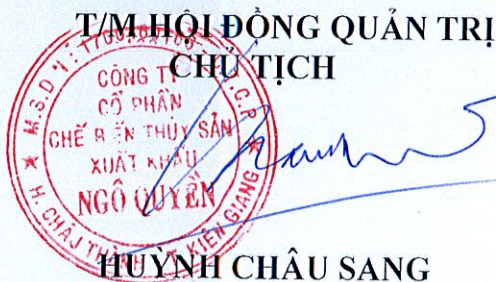 T/M HỘI ĐỒNG QUẢN TRỊ
CHỦ TỊCH
CÔNG TY
CỔ PHẦN
CHẾ BIẾN THỦY SẢN
XUẤT KHẨU
NGÔ QUYỀN
H. CHÂU THÀNH - T. KIÊN GIANG
HUỲNH CHÂU SANG